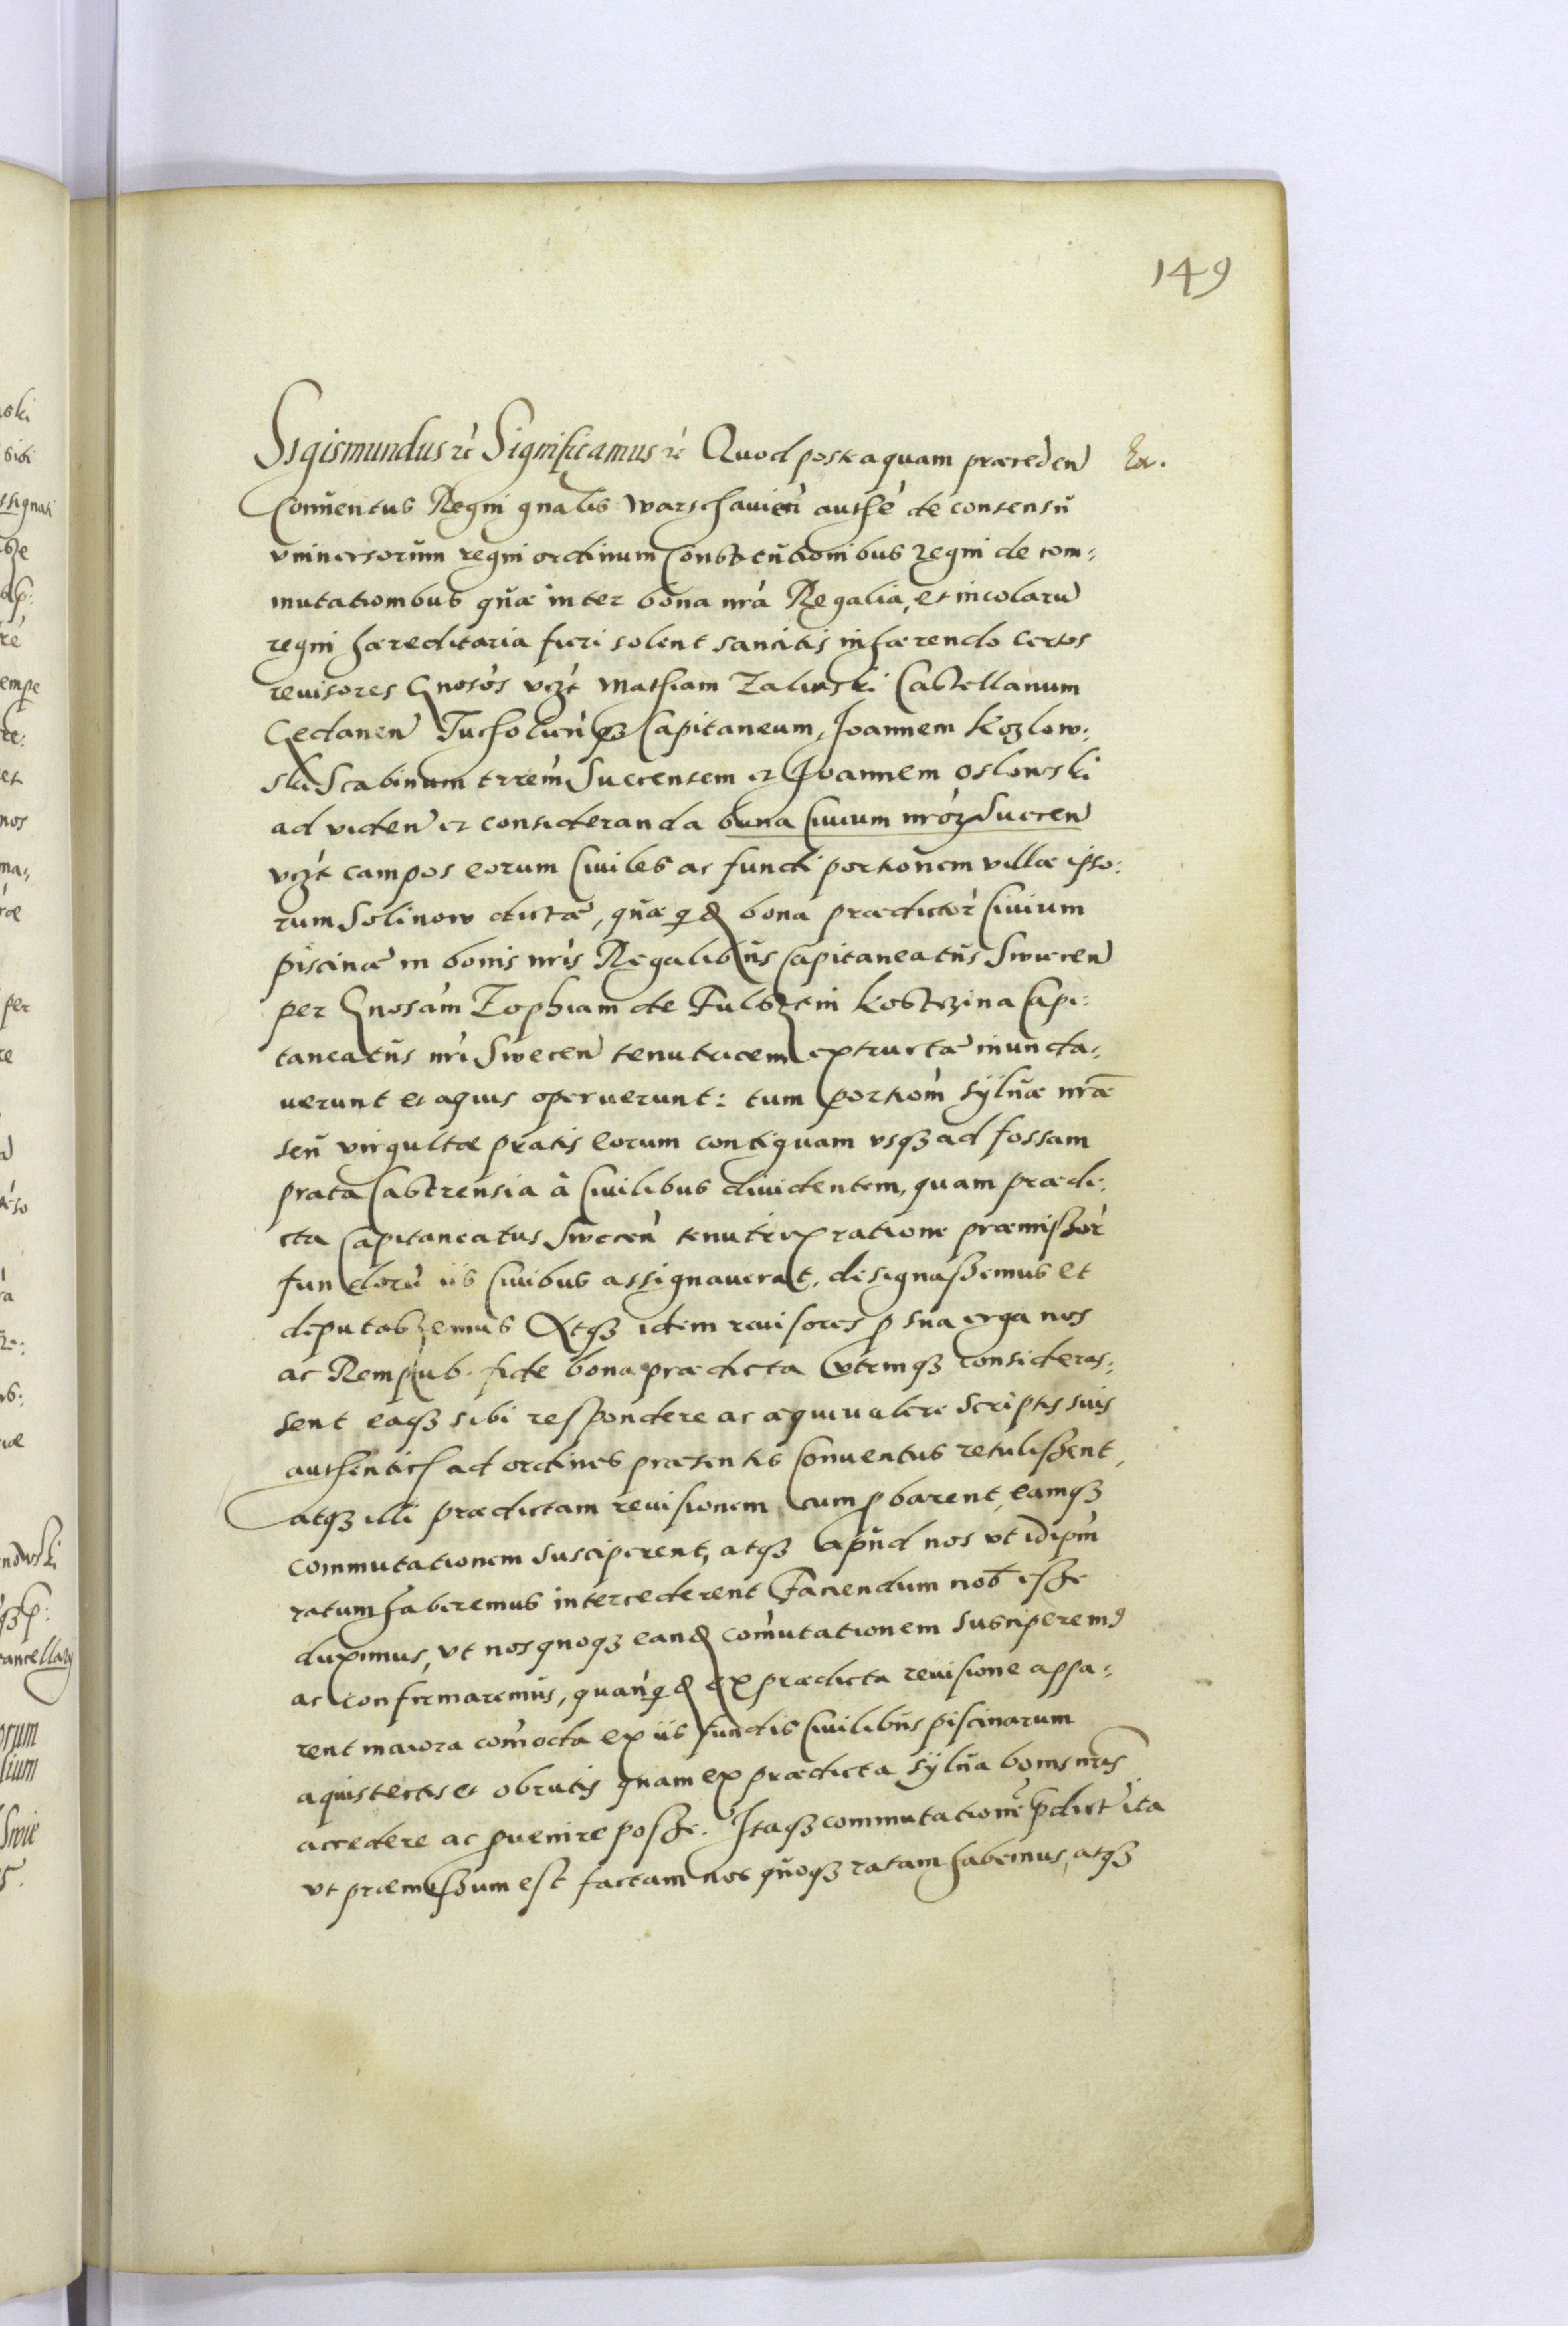 149
Sigismundus etc Significamus etc Quod posteaquam præceden Ex.
Conuentus Regni gnalis Warschauien authe de consensu
vniuersorum regni ordinum Constitutionibus regni de com:
mutationibus quæ inter bona nra Regalia, et incolaru
regni hæreditaria fieri solent sancitis inhærendo certos
reuisores Gnosos vczt Mathiam Zalinski Castellanum
Gedanen Tucholien qz Capitaneum, Joannem Kozlow:
ski Scabinum trrem Suecensem et Joannem Oslowski
ad viden et consideranda bona Ciuium nror Suecen
vczt campos eorum Ciuiles ac fundi portionem villæ ipso:
rum Solinow dictæ, quæ qd bona prædictor Ciuium
piscinæ in bonis nris Regalibus Capitaneatus Swiecen
per Gnosam Zophiam de Fulsztein Kostczina Capi:
taneatus nri Swecen tenutricem extructæ inunda:
uerunt et aquis operuerunt: tum portiom syluæ nræ
seu virgultæ pratis eorum contiguam vsqz ad fossam
prata Castrensia à Ciuilibus diuidentem, quam prædi:
cta Capitaneatus Swecen tenutrix ratione præmissor
fundoru iis Ciuibus assignauerat, designassemus et
deputassemus Atqz idem reuisores p sua erga nos
ac Rempub. fide bona prædicta vtrinqz consideras:
sent eaqz sibi respondere ac æquiualere scriptis suis
authenticis ad ordines præsentis Conuentus retulissent,
atqz illi prædictam reuisionem cum pbarent, eamqz
commutationem susciperent, atqz apud nos vt idipm
ratum haberemus intercederent Faciendum nob esse
duximus, vt nos quoqz eand comutationem susciperemg
ac confirmaremus, quanqd ex prædicta reuisione appa:
rent maiora comoda ex iis fundis Ciuilibus piscinarum
aquis tectis et obrutis quam ex prædicta sylua bonis nris
accedere ac puenire posse. Itaqz commutatione pdict ita
vt præmissum est factam nos quoqz ratam habemus, atqz